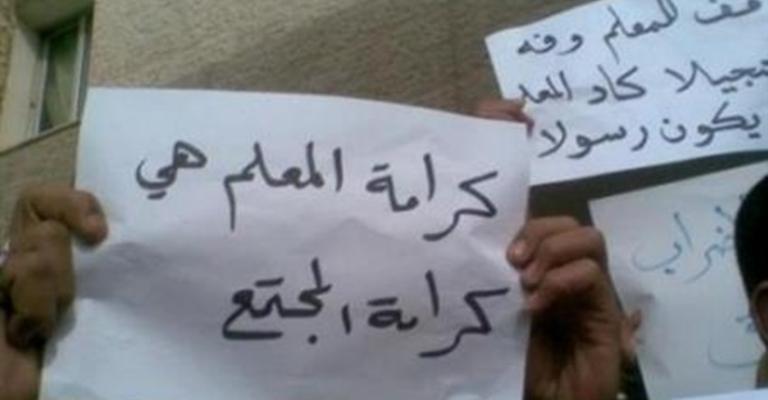 كرامة المعلم هي
كرامة المجتمع
قف للمعلم وفه
تبجيلا كاد المعلـ
يكون رسولا